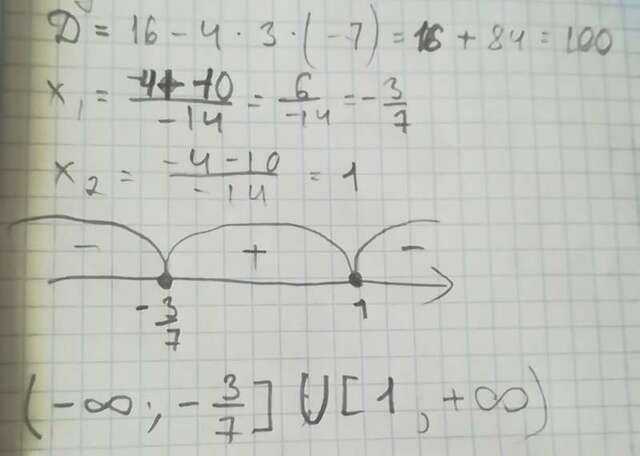 D = 16 - 4 · 3 · (-7) = 16 + 84 = 100
x₁ = (-4 + 10)/(-14) = 6/(-14) = -3/7
x₂ = (-4 - 10)/(-14) = 1
- + -
-3/7 1
(-∞; -3/7] ∪ [1, +∞)